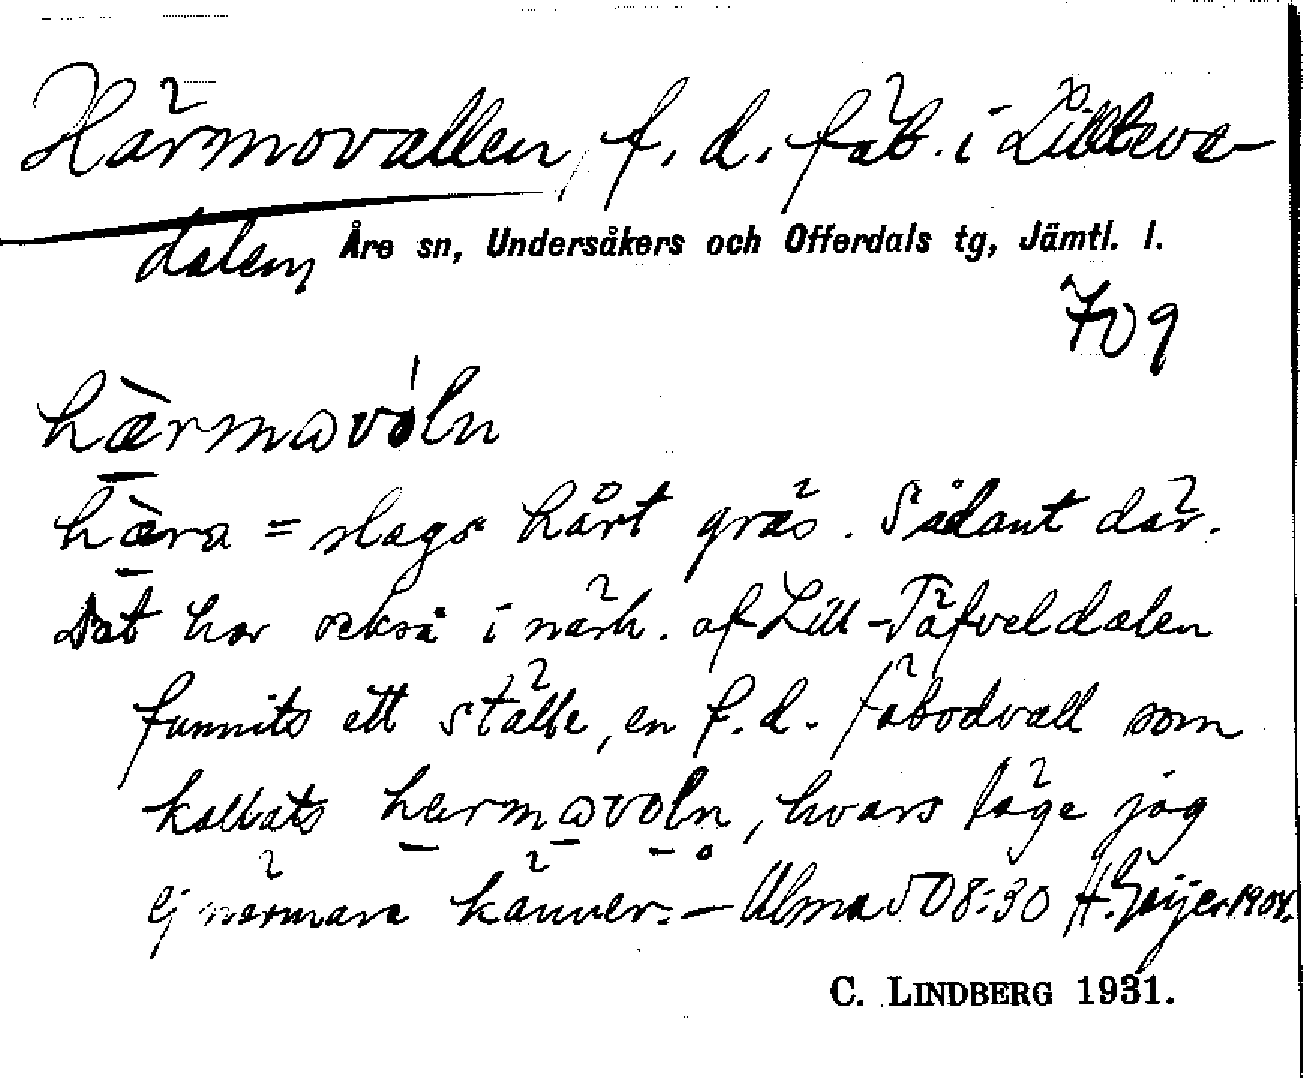 Härmovallen, f. d. fäb. i Lillteve-
dalen, Åre sn, Undersåkers och Offerdals tg, Jämtl. l.
709
hàrmavóln
hàra = slags hårt gräs. Sådant där.
Det har också i närh. af Lill-Täfveldalen
funnits ett ställe, en f. d. fäbodvall som
kallats harmavoln, hvars läge jag
ej närmare känner. — Alma 508:30 H. Geijer 1908.
C. LINDBERG 1931.